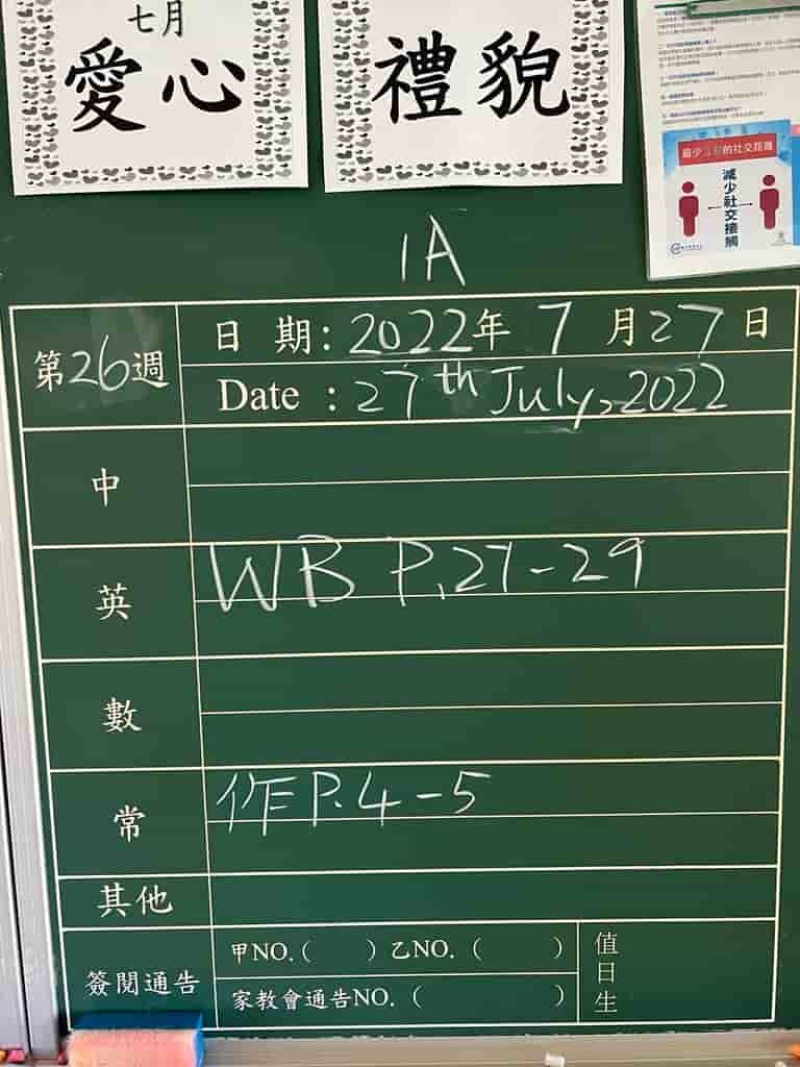 七月
愛心
禮貌
最少
的社交距離
減少社交接觸
1A
第26週
日 期：2022年 7 月27日
Date ：27th July, 2022
中
英
WB P.27-29
數
常
作P.4-5
其他
簽閱通告
甲NO.（ ）乙NO.（ ）
家教會通告NO.（ ）
值日生